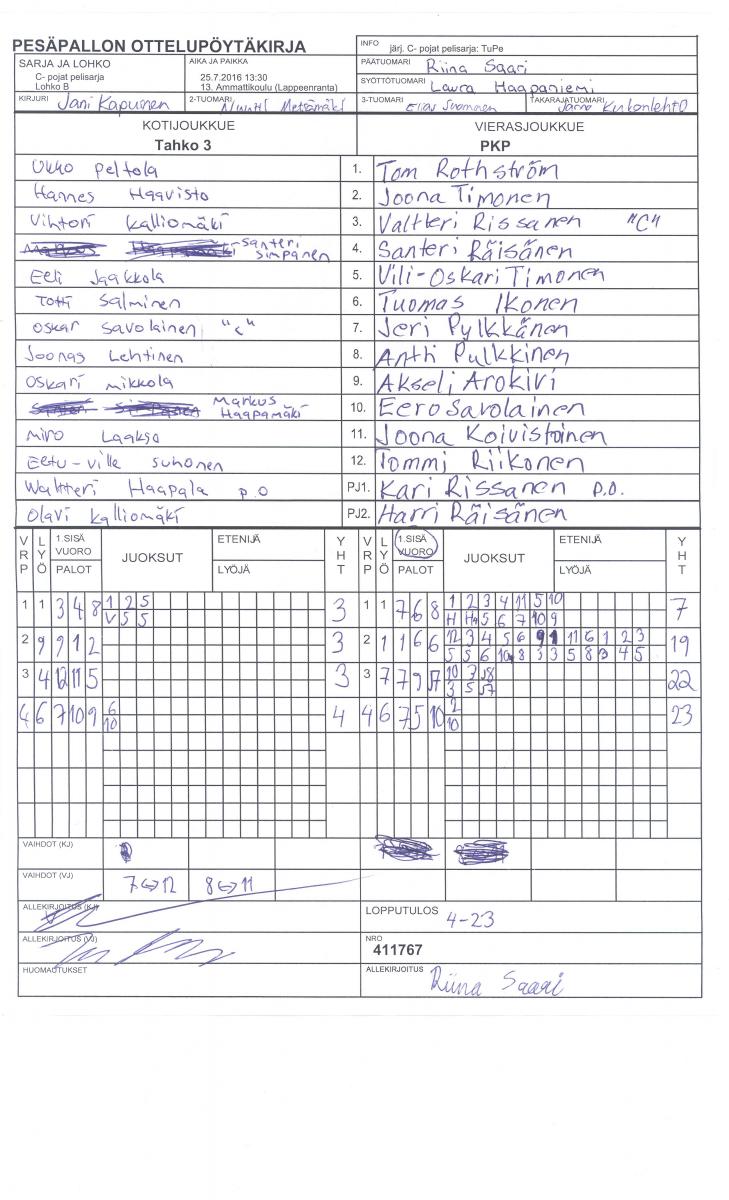 PESÄPALLON OTTELUPÖYTÄKIRJA
INFO järj. C- pojat pelisarja: TuPe
SARJA JA LOHKO
C- pojat pelisarja
Lohko B
AIKA JA PAIKKA
25.7.2016 13:30
13. Ammattikoulu (Lappeenranta)
PÄÄTUOMARI Riina Saari
SYÖTTÖTUOMARI Laura Haapaniemi
KIRJURI Jani Kapunen
2-TUOMARI Metsämäki
3-TUOMARI Elias Suomonen
TAKARAJATUOMARI Jarno Kukonlehto
KOTIJOUKKUE
Tahko 3
VIERASJOUKKUE
PKP
Ukko Peltola 1. Tom Rothström
Hannes Haavisto 2. Joona Timonen
Vihtori Kalliomäki 3. Valtteri Rissanen "C"
Santeri Simpanen 4. Santeri Räisänen
Eeli Jaakkola 5. Vili-Oskari Timonen
Totti Salminen 6. Tuomas Ikonen
Oskar Savolainen "C" 7. Jeri Pylkkänen
Joonas Lehtinen 8. Antti Pulkkinen
Oskari Mikkola 9. Akseli Arokivi
Markus Haapamäki 10. Eero Savolainen
Miro Laakso 11. Joona Koivistoinen
Eetu-Ville Suhonen 12. Tommi Riikonen
Waltteri Haapala P.O PJ1. Kari Rissanen P.O.
Olavi Kalliomäki PJ2. Harri Räisänen
VRP LYÖ 1.SISÄ VUORO PALOT JUOKSUT ETENIJÄ LYÖJÄ YHT
VRP LYÖ 1.SISÄ VUORO PALOT JUOKSUT ETENIJÄ LYÖJÄ YHT
1 1 3 4 8 1 2 5 3 1 1 7 6 8 1 2 3 4 11 5 10 7
V 5 5 H H 5 6 7 10 9
2 9 9 1 2 3 2 1 1 6 6 12 3 4 5 6 9 1 11 6 1 2 3 19
5 5 6 10 8 3 3 5 8 3 4 5
3 4 12 11 5 3 3 7 7 9 10 3 22
3 5
4 6 7 10 9 6 4 4 6 7 5 10 2 23
10 10
VAIHDOT (KJ)
VAIHDOT (VJ) 7<->12 8<->11
ALLEKIRJOITUS (KJ)
LOPPUTULOS 4-23
ALLEKIRJOITUS (VJ)
NRO
411767
HUOMAUTUKSET
ALLEKIRJOITUS Riina Saari